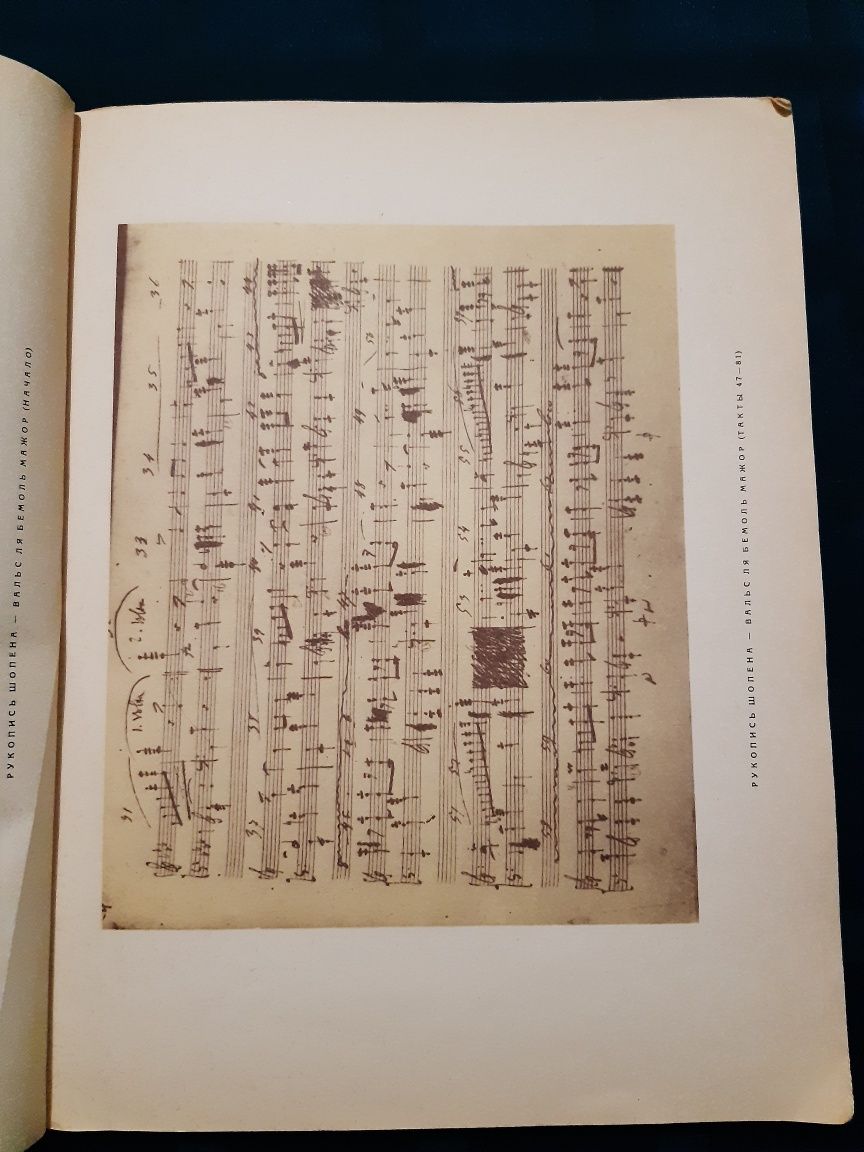 РУКОПИСЬ ШОПЕНА — ВАЛЬС ЛЯ БЕМОЛЬ МАЖОР (НАЧАЛО)
1. Volta 2. Volta
31 33 34 35 36
37 38 39 40 41 42 43 44
46 47 48 49
53 54 55 56
РУКОПИСЬ ШОПЕНА — ВАЛЬС ЛЯ БЕМОЛЬ МАЖОР (ТАКТЫ 47—81)